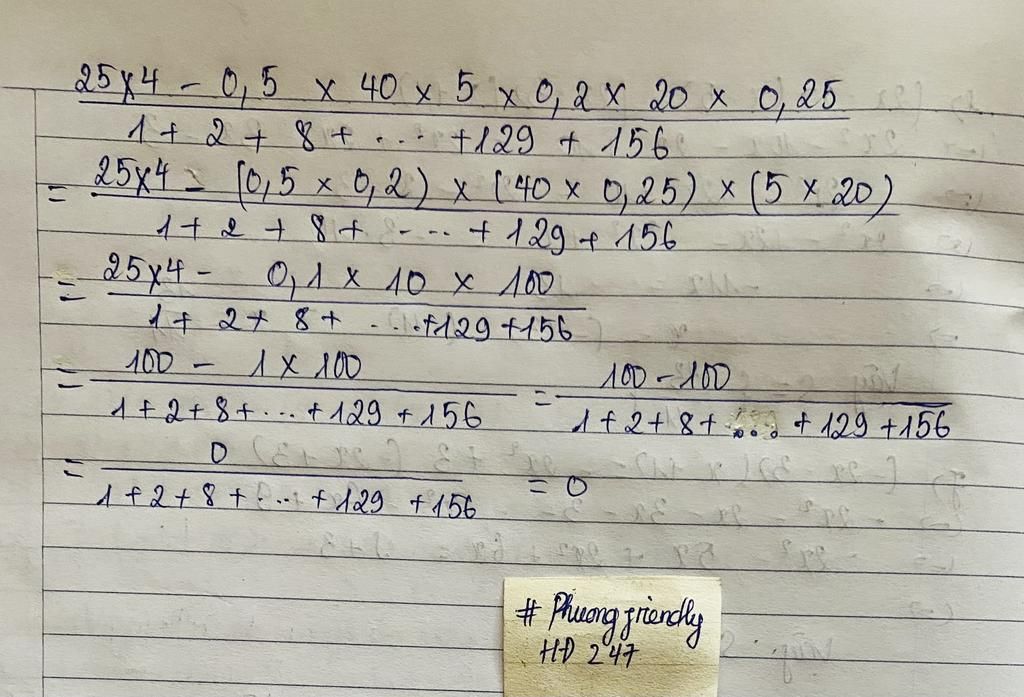 25x4 - 0,5 x 40 x 5 x 0,2 x 20 x 0,25
1 + 2 + 8 + ... +129 + 156
= 25x4 - (0,5 x 0,2) x (40 x 0,25) x (5 x 20)
1 + 2 + 8 + ... + 129 + 156
= 25x4 - 0,1 x 10 x 100
1 + 2 + 8 + ... +129 +156
= 100 - 1 x 100 = 100 - 100
1 + 2 + 8 + ... + 129 + 156 1 + 2 + 8 + ... + 129 + 156
= 0 = 0
1 + 2 + 8 + ... + 129 + 156
# Phuong friendly
HD 247